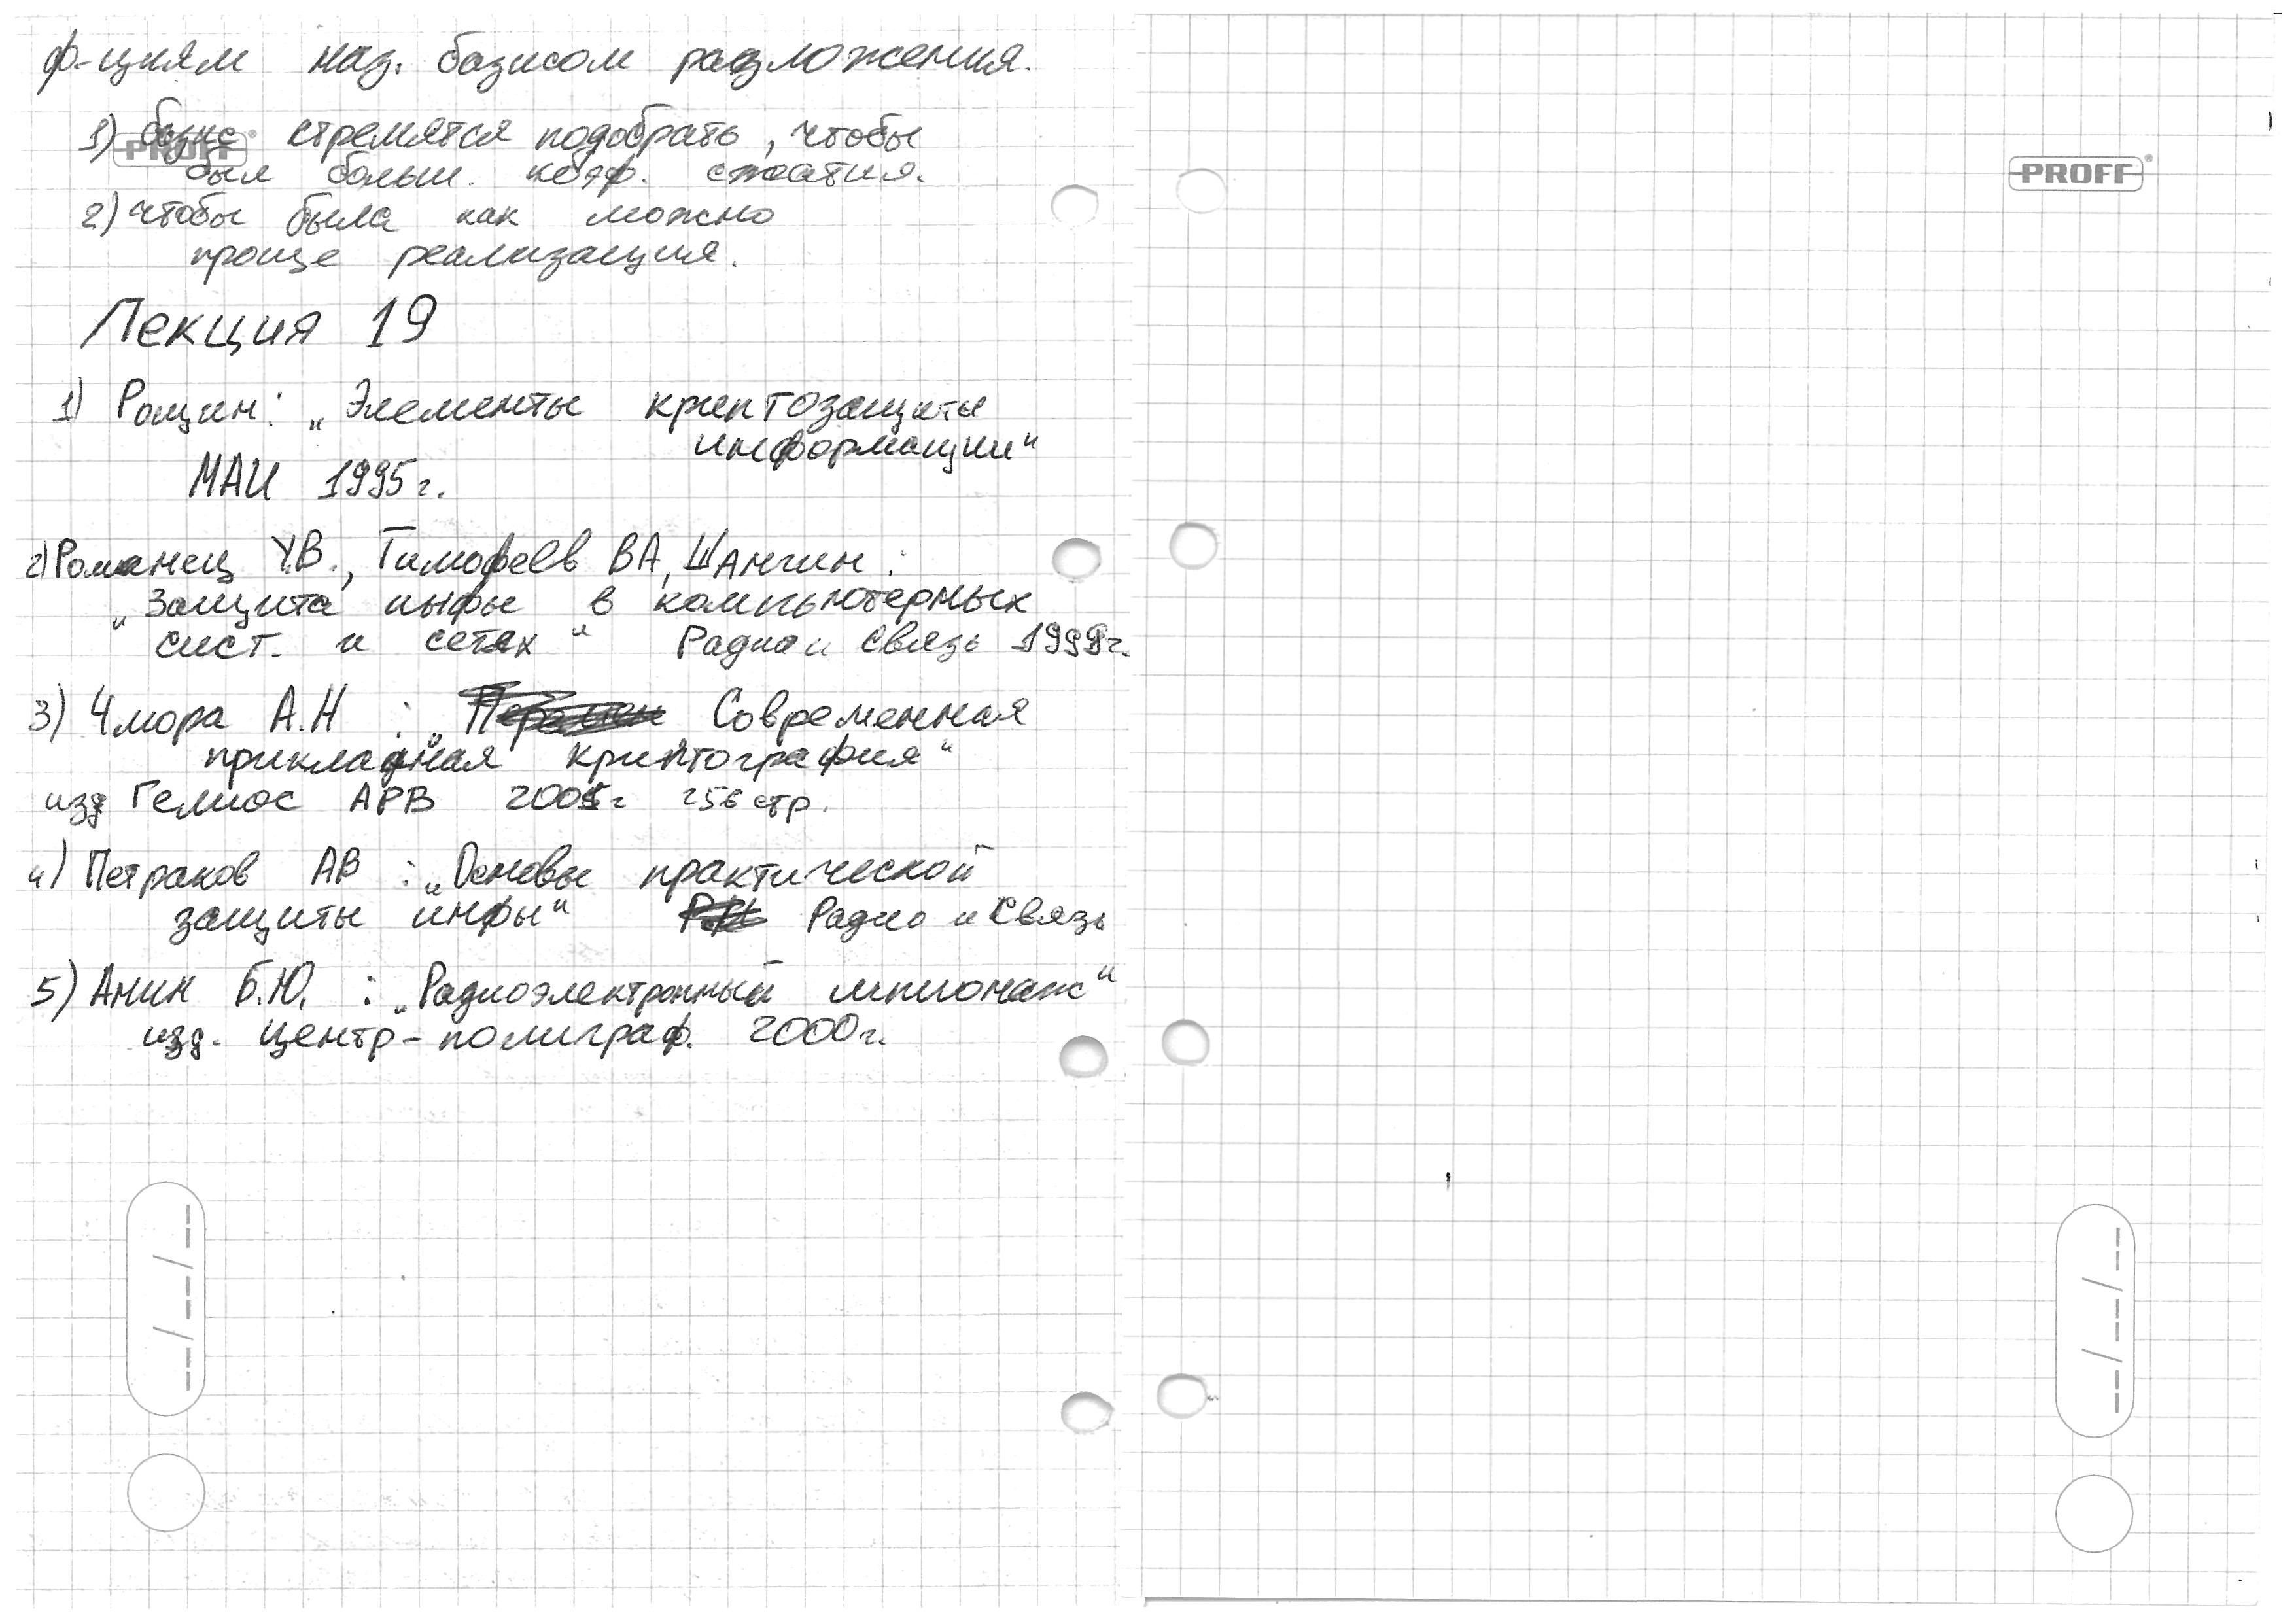 ф-циям наз. базисом разложения.
1) базис стремятся подобрать, чтобы
был больш. коэф. сжатия.
2) чтобы была как можно
проще реализация.
Лекция 19
1) Рощин: „Элементы криптозащиты
информации“
МАИ 1995г.
2) Романец Y.В., Тимофеев ВА, Шаньгин :
„Защита инфы в компьютерных
сист. и сетях“ Радио и связь 1999г.
3) Чмора А.Н : „ Современная
прикладная криптография“
изд Гелиос АРВ 2001г 256 стр.
4) Петраков АВ : „Основы практической
защиты инфы“ Радио и Связь
5) Анин Б.Ю. : „Радиоэлектронный шпионаж“
изд. центр-полиграф. 2000г.
PROFF®
PROFF®